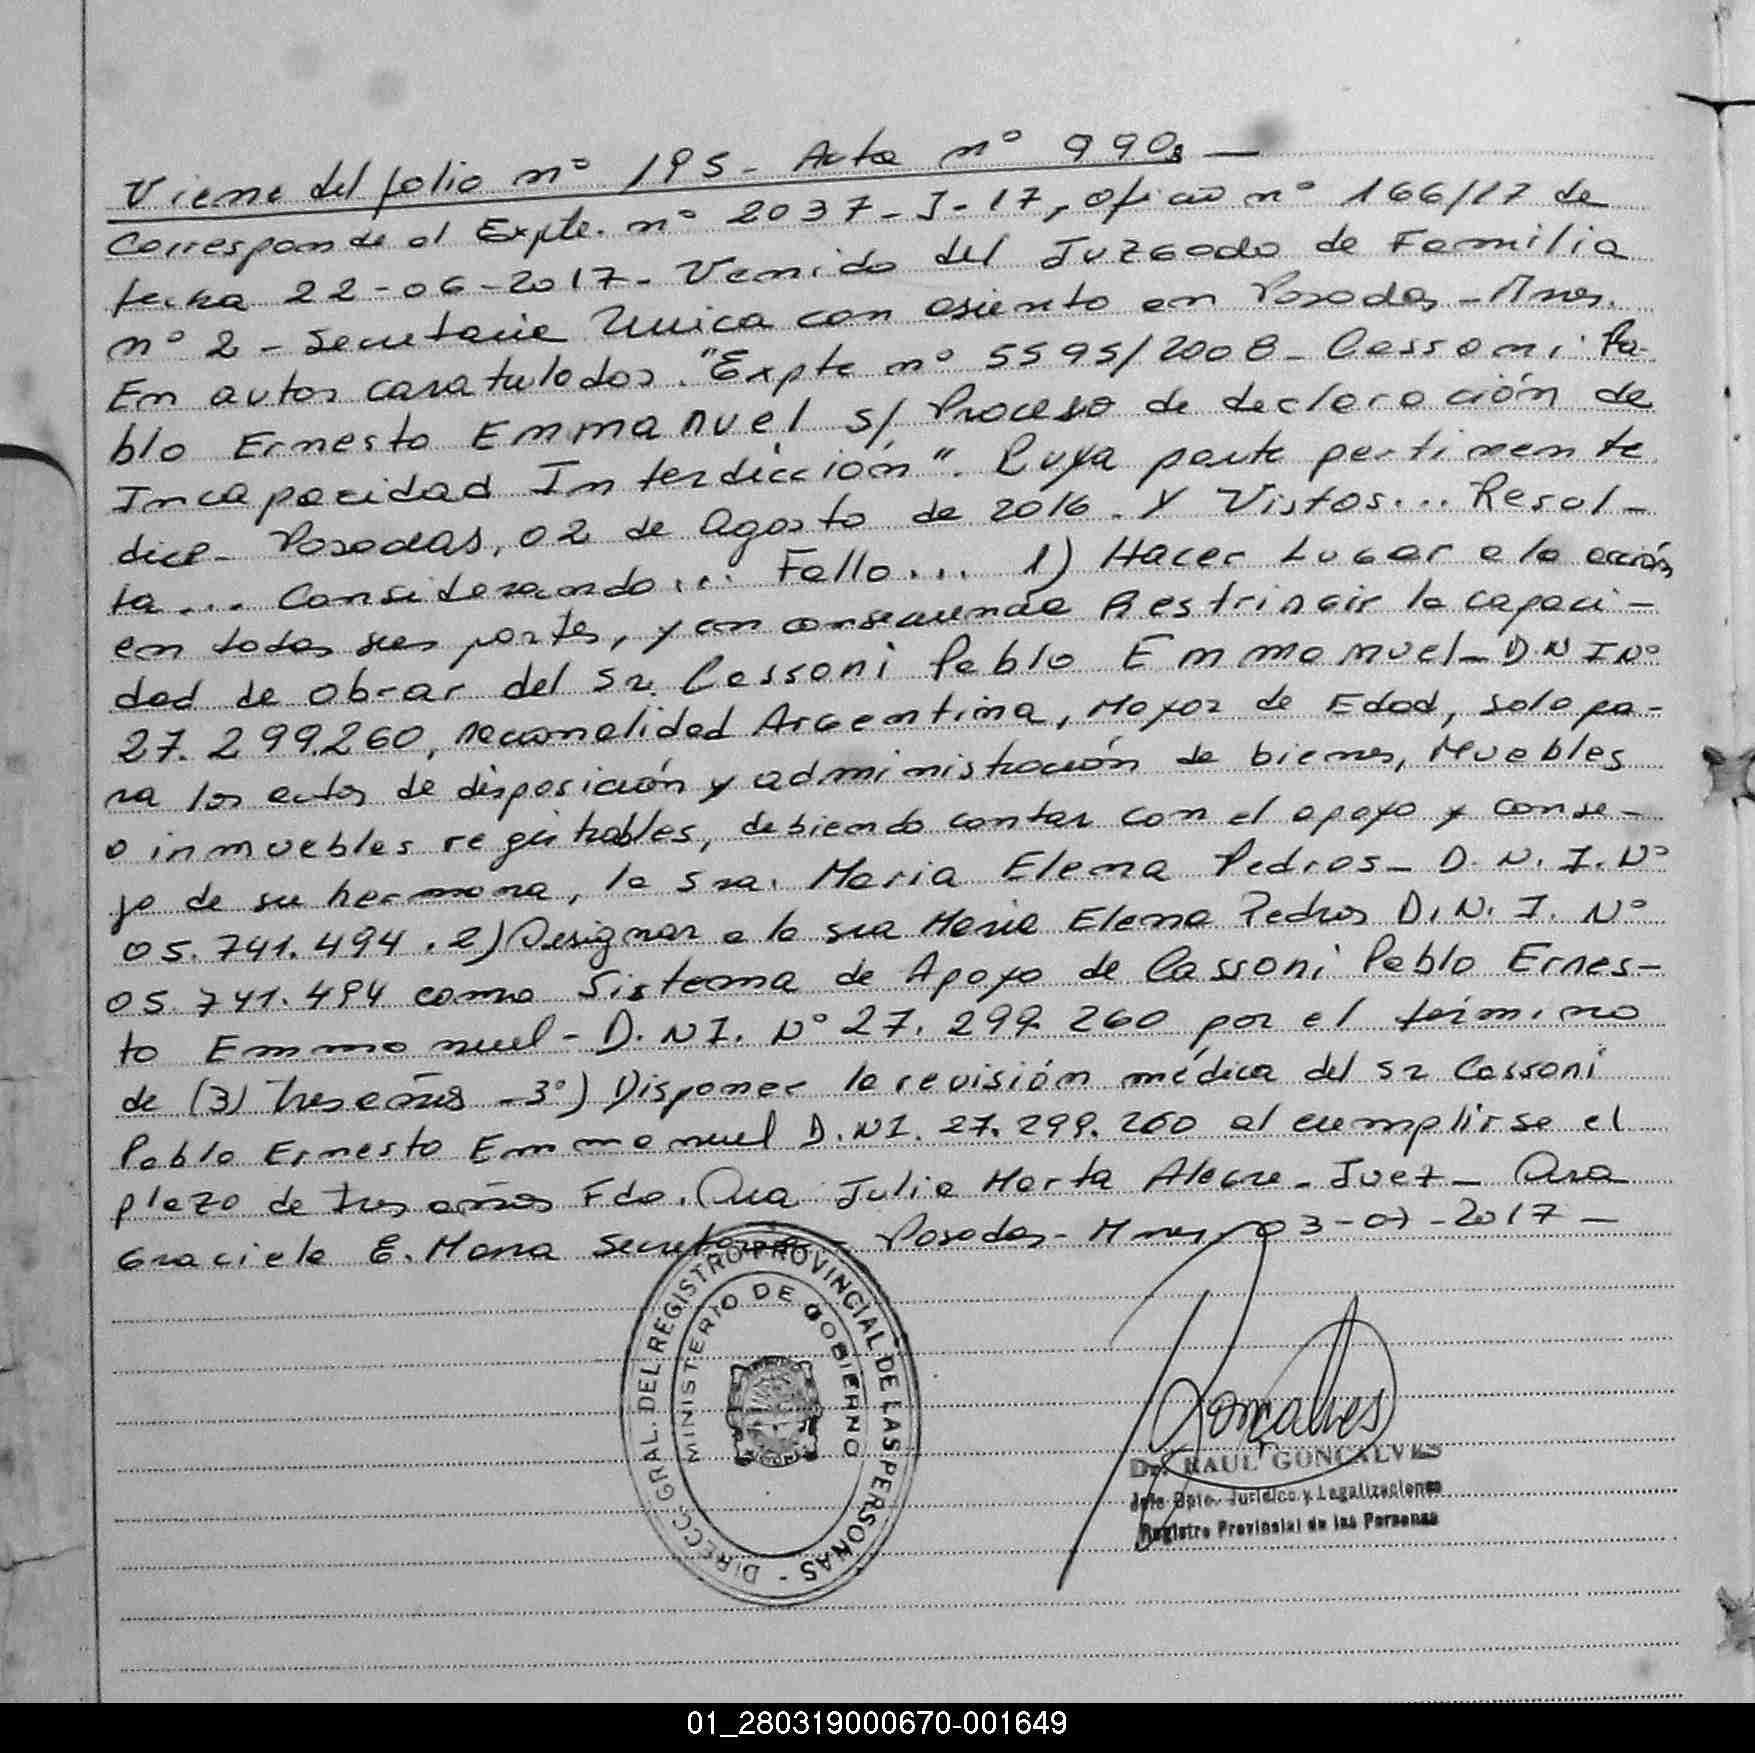 Viene del folio n° 195 - Acta n° 990s —
Corresponde al Expte. n° 2037-J-17, oficio n° 166/17 de
fecha 22-06-2017- Venido del Juzgado de Familia
n° 2 - Secretaria Unica con asiento en Posadas - Mnes.
En autos caratulados. "Expte n° 5595/2008 - Cassoni Pa-
blo Ernesto Emmanuel s/ Proceso de declaración de
Incapacidad Interdicción". Cuya parte pertinente
dice - Posadas, 02 de Agosto de 2016. Y Vistos... Resul-
ta... Considerando... Fallo... 1) Hacer Lugar a la acción
en todas sus partes, y en consecuencia Restringir la capaci-
dad de obrar del Sr. Cassoni Pablo Emmanuel - DNI N°
27.299.260, nacionalidad Argentina, Mayor de Edad, solo pa-
ra los actos de disposición y administración de bienes, Muebles
o inmuebles registrables, debiendo contar con el apoyo y conse-
jo de su hermana, la Sra. Maria Elena Pedros - D.N.I. N°
05.741.494. 2) Designar a la sra Maria Elena Pedros D.N.I. N°
05.741.494 como Sistema de Apoyo de Cassoni Pablo Ernes-
to Emmanuel - D.NI. N° 27.299.260 por el término
de (3) tres años - 3°) Disponer la revisión médica del Sr Cassoni
Pablo Ernesto Emmanuel D.NI. 27.299.260 al cumplirse el
plazo de tres años Fdo. Dra Julia Marta Alegre - Juez - Dra
Graciela E. Mana Secretaria - Posadas - Mnes, 03-07-2017 —
DIRECC. GRAL. DEL REGISTRO PROVINCIAL DE LAS PERSONAS -
MINISTERIO DE GOBIERNO
Gonçalves
Dr. RAUL GONCALVES
Jefe Dpto. Jurídico y Legalizaciones
Registro Provincial de las Personas
01_280319000670-001649